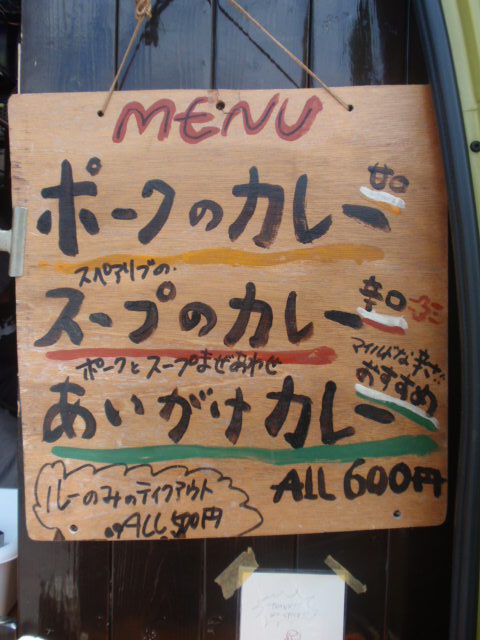 MENU
ポークのカレー 甘口
スペアリブの
スープのカレー 辛口
ポークとスープまぜあわせ
マイルドな辛さ!!
おすすめ
あいがけカレー
ALL 600円
ルーのみのテイクアウト
ALL 500円